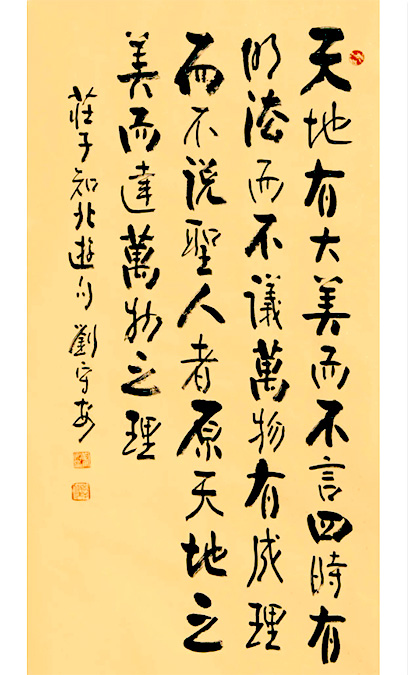 天地有大美而不言四時有
明法而不議萬物有成理
而不说聖人者原天地之
美而達萬物之理
莊子知北遊句 劉守安